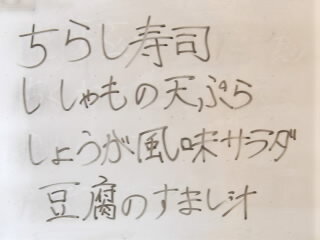 ちらし寿司
ししゃもの天ぷら
しょうが風味サラダ
豆腐のすまし汁